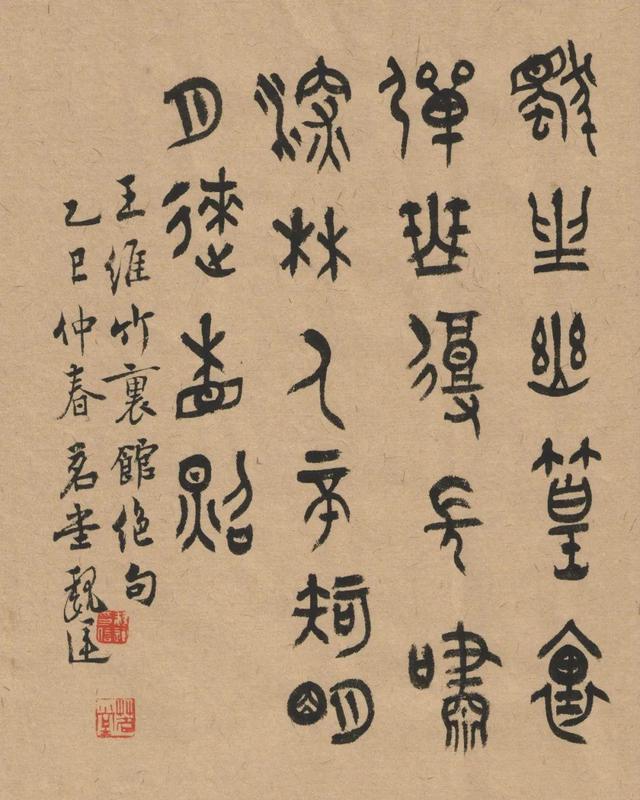 獨坐幽篁裏
彈琴復長嘯
深林人不知明
月來相照
王維竹裏館絶句
乙巳仲春茗堂魏
茗堂